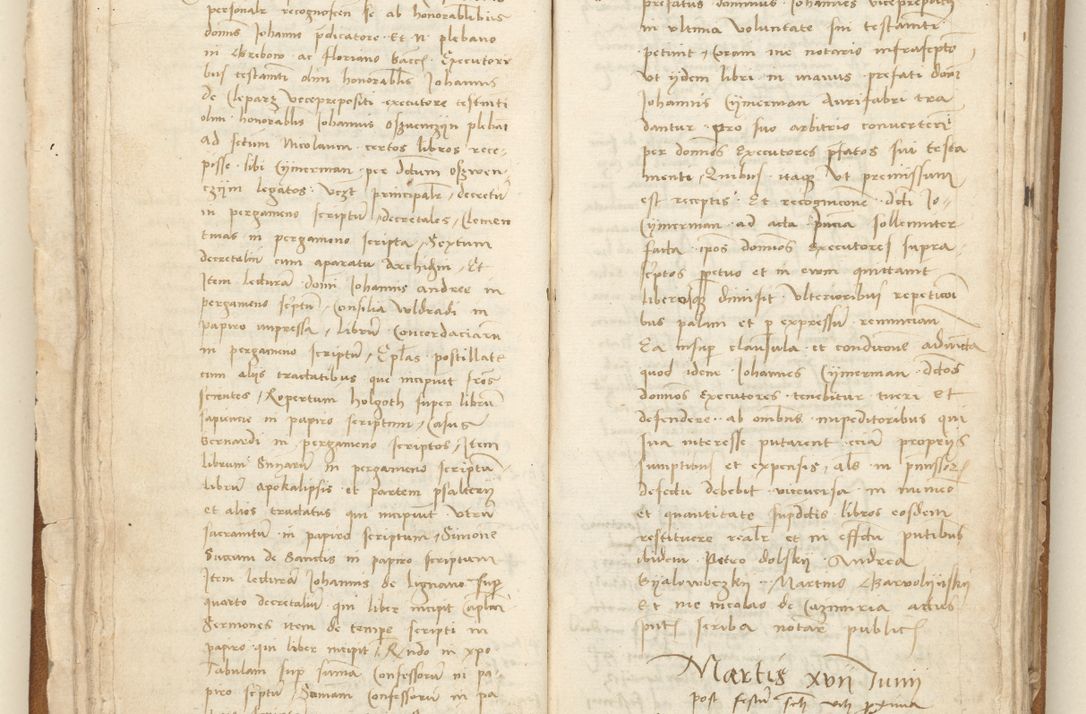 personalr recognoscen se ab honorabilibus
domis Johanne pdicatore Et N plebano
in Gribow ac floriano Executori
bus testamti olim honorabilis Johannis
de Cleparz viceprepositi executore testmti
olim honorabilis Johannis Oszwenczijn plebani
ad sctum Nicolaum certos libros rece-
pisse sibi Cijmerman per dctum Oszwen-
czijm legatos vczt principalr decretum
in pergameno scriptum decretales Clemen
tinas in pergameno scripta Sextum
decretalium cum aparatu Archidijn Et
Item lecturam domi Johannis andree in
pergameno scptum Consilia Uldradi in
papiro impressa librum Concordaciarum
in pergameno scriptum Eplas postillate
cum alijs tractatibus que incipiunt fros
scientes Ropertum holgoth super librum
sapiencie in papiro scriptum Casus
Bernardi in pergameno scriptos Item
librum in pergameno scriptum
librum Apokalipsis et partem psalterij
et alios tractatus qui incipiunt utrum
sacramtum in papiro scriptum Simonem
de Sanctis in papiro scriptum
Item lecturam Johannis de lignano sup
quarto decretalium qui liber incipit
Sermones item de tempe scripti in
papiro qui liber incipit in xpo
Tabulam sup summam Confessorum in pa
piro scptum Summam Confessorum in pa
prefatus dominus Johannes viceprepositus
in ultima voluntate sui testamti
petiuit Coram me notario infrascpto
ut ijdem libri in manus prefati domi
Johannis Cijmerman Aurifabri tra
dantur pro suo arbitrio convertendi
per domios Executores pfatos sui testa
menti Quibus itaque ut premissum
est receptis Et recognicone dcti Jo-
Cijmerman ad acta pncia sollemniter
facta ipos domios Executores supra
scptos ppetuo et in ewm quittauit
liberosque dimisit Ulterioribus repeticoi
bus palam et p expressum renuncian
Ea insup clausula et condicione adiuncta
quod idem Johannes Cijmerman dctos
domios Executores tenebitur tueri Et
defendere ab omibus impeditoribus qui
sua interesse putarent eciam proprijs
sumptibus et expensis als in pmissor
defectu debebit viceversa in numero
et quantitate supdctis libros eosdem
restituere realr et in effectu pntibus
ibidem Petro dolskij Andrea
Martino
Et me Nicolao de Cazimiria actus
pntis scriba notar public
Martis xvij Junij
post festum scti viti proxima